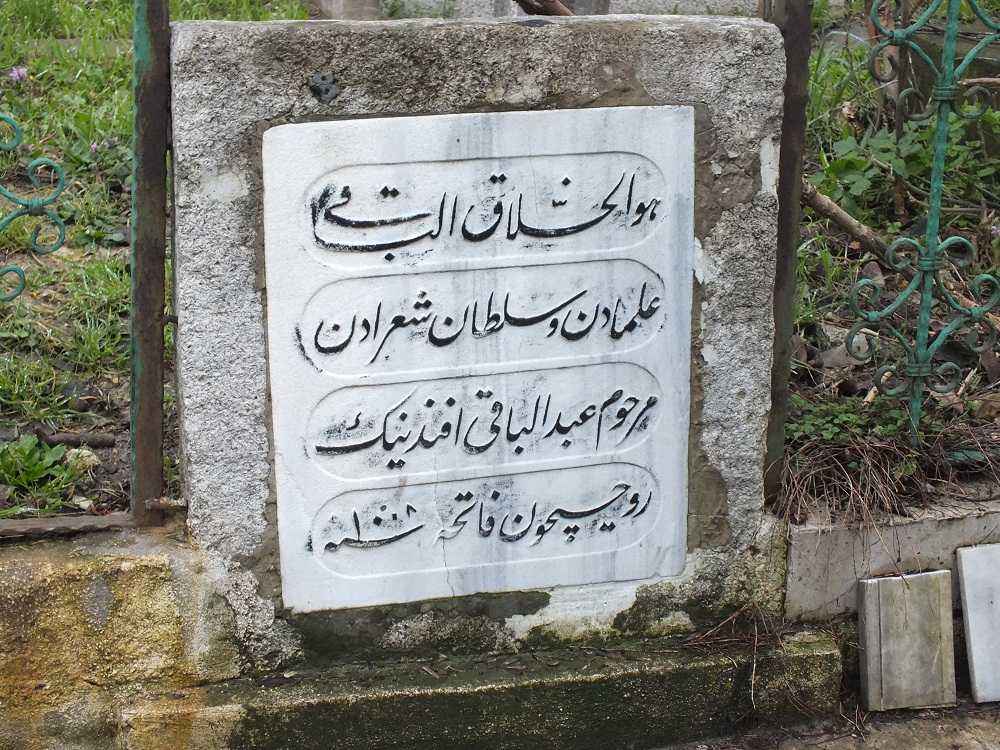 هو الخلّاق الباقی
علمادن و سلطان شعرادن
مرحوم عبد الباقی افندینیك
روحیچون فاتحه سنه ١٠٠٨